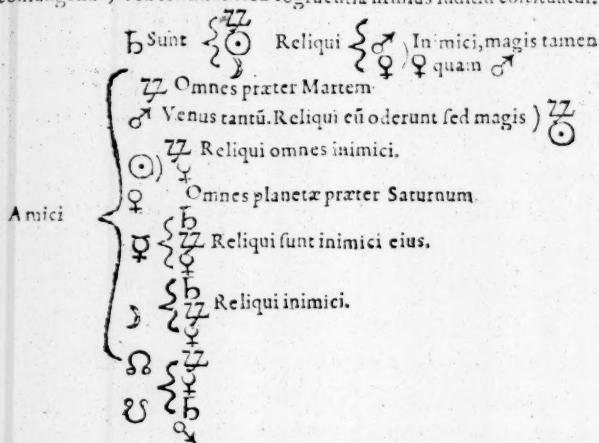 ♄ Sunt ♃ ☉ ☽ Reliqui ♂ ♀ Inimici, magis tamen ♀ quam ♂
♃ Omnes præter Martem
♂ Venus tantũ. Reliqui eũ oderunt ſed magis ♃ ☉
☉ ♃ ♀ Reliqui omnes inimici.
♀ Omnes planetæ præter Saturnum
Amici
☿ ♄ ♃ ♀ Reliqui ſunt inimici eius.
☽ ♄ ♃ ♀ Reliqui inimici.
☊ ♃ ♀
☋ ♄ ♂